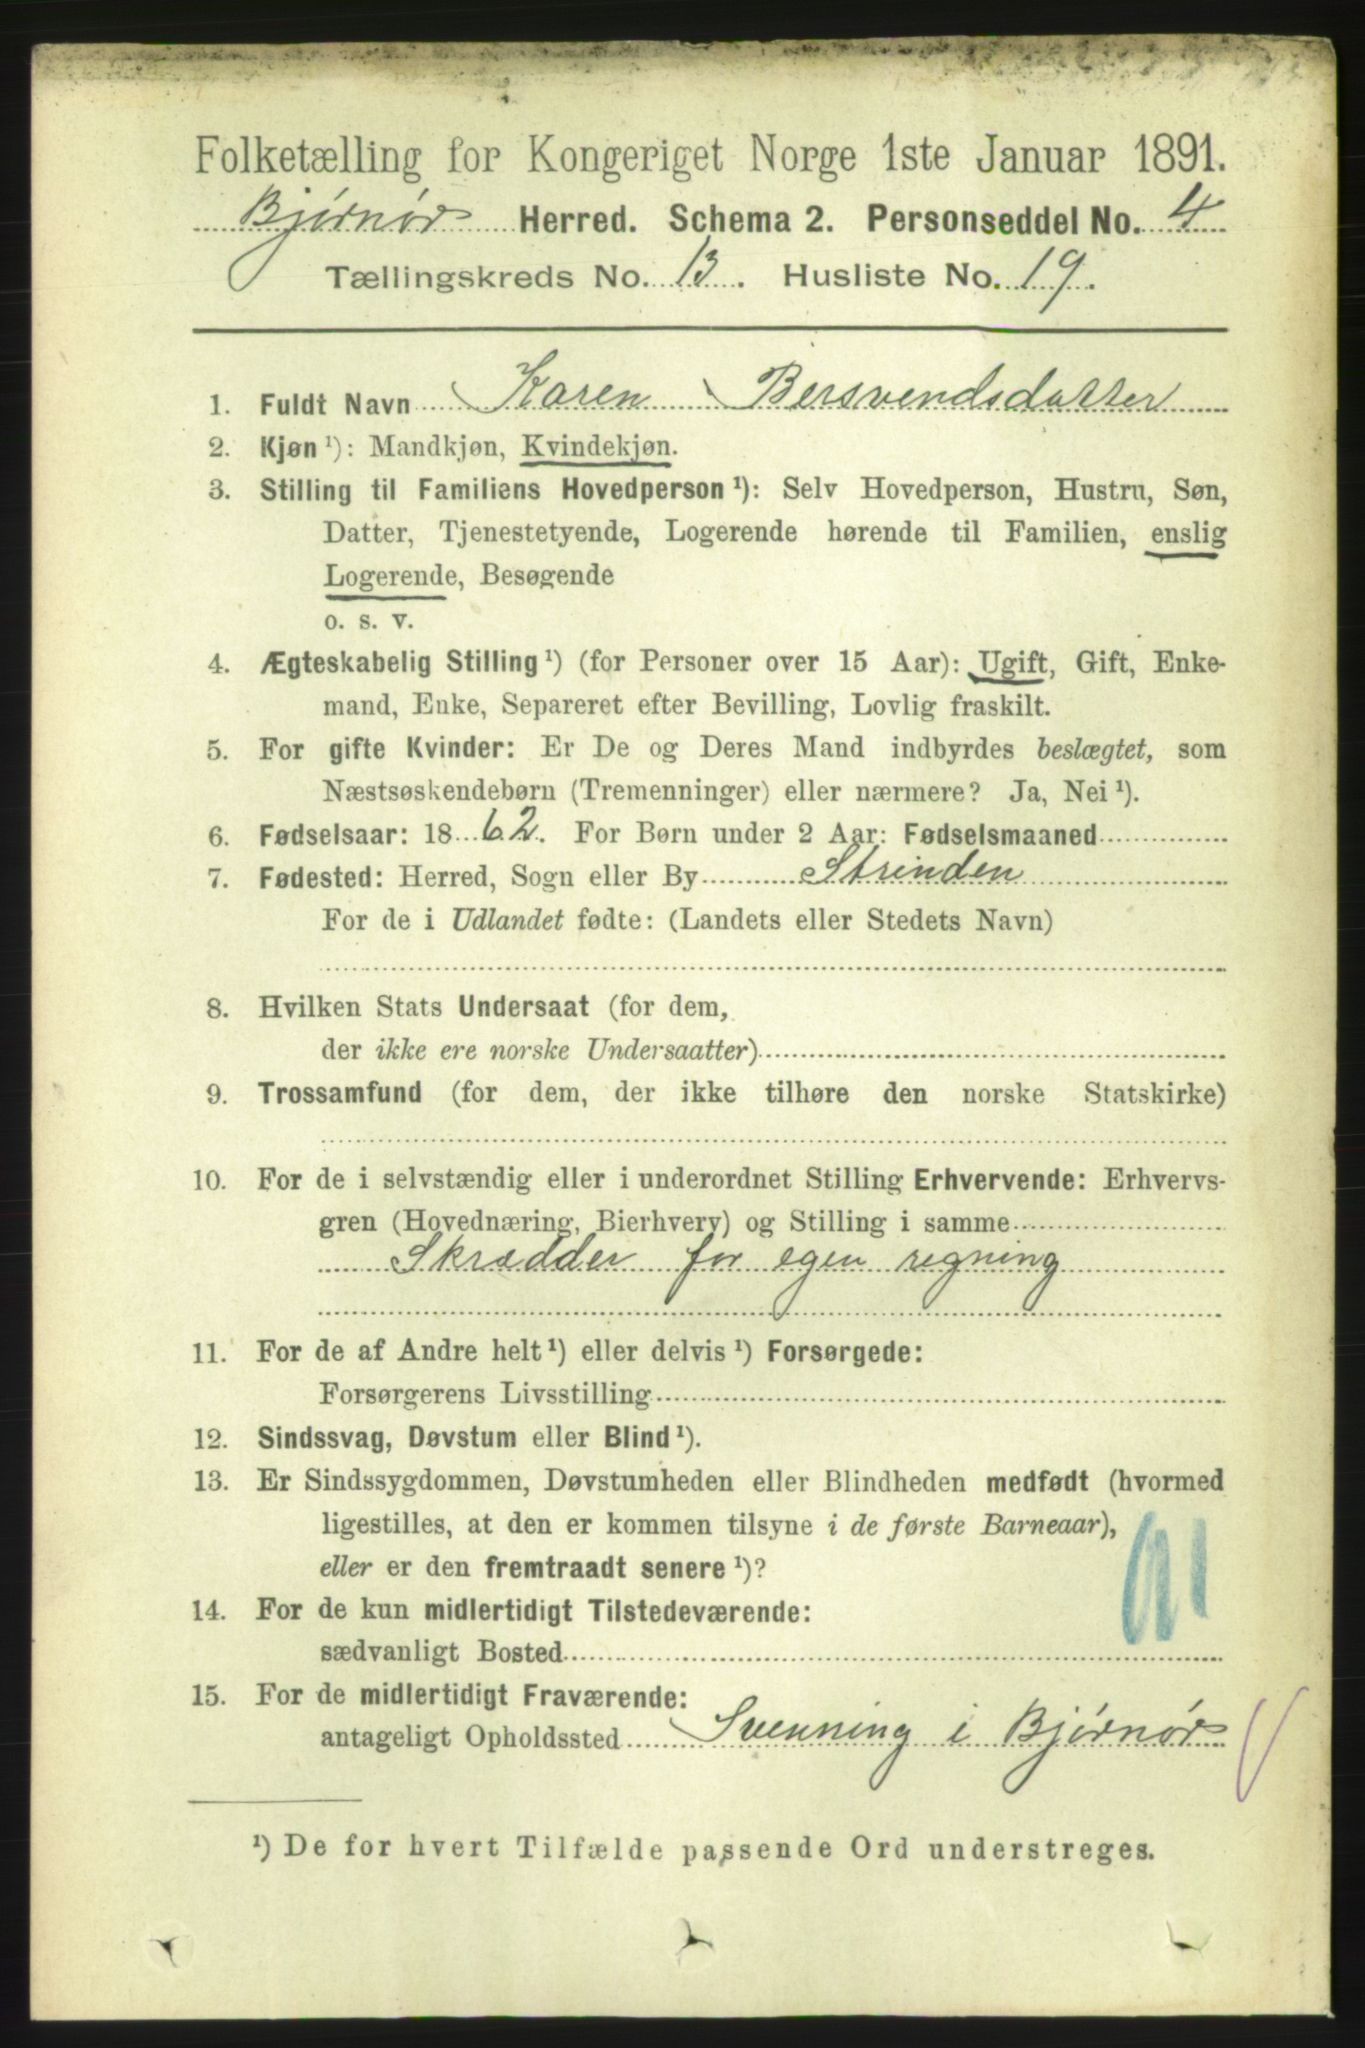 Folketælling for Kongeriget Norge 1ste Januar 1891.
Bjørnør Herred. Schema 2. Personseddel No. 4
Tællingskreds No. 13. Husliste No. 19.
1. Fuldt Navn Karen Bersvendsdatter
2. Kjøn ¹): Mandkjøn, Kvindekjøn.
3. Stilling til Familiens Hovedperson ¹): Selv Hovedperson, Hustru, Søn,
Datter, Tjenestetyende, Logerende hørende til Familien, enslig
Logerende, Besøgende
o. s. v.
4. Ægteskabelig Stilling ¹) (for Personer over 15 Aar): Ugift, Gift, Enke-
mand, Enke, Separeret efter Bevilling, Lovlig fraskilt.
5. For gifte Kvinder: Er De og Deres Mand indbyrdes beslægtet, som
Næstsøskendebørn (Tremenninger) eller nærmere? Ja, Nei ¹).
6. Fødselsaar: 1862. For Børn under 2 Aar: Fødselsmaaned
7. Fødested: Herred, Sogn eller By Strinden
For de i Udlandet fødte: (Landets eller Stedets Navn)
8. Hvilken Stats Undersaat (for dem,
der ikke ere norske Undersaatter)
9. Trossamfund (for dem, der ikke tilhøre den norske Statskirke)
10. For de i selvstændig eller i underordnet Stilling Erhvervende: Erhvervs-
gren (Hovednæring, Bierhverv) og Stilling i samme
Skrædder for egen regning
11. For de af Andre helt ¹) eller delvis ¹) Forsørgede:
Forsørgerens Livsstilling
12. Sindssvag, Døvstum eller Blind ¹).
13. Er Sindssygdommen, Døvstumheden eller Blindheden medfødt (hvormed
ligestilles, at den er kommen tilsyne i de første Barneaar),
eller er den fremtraadt senere ¹)?
14. For de kun midlertidigt Tilstedeværende:
sædvanligt Bosted
15. For de midlertidigt Fraværende:
antageligt Opholdssted Svenning i Bjørnør
¹) De for hvert Tilfælde passende Ord understreges.